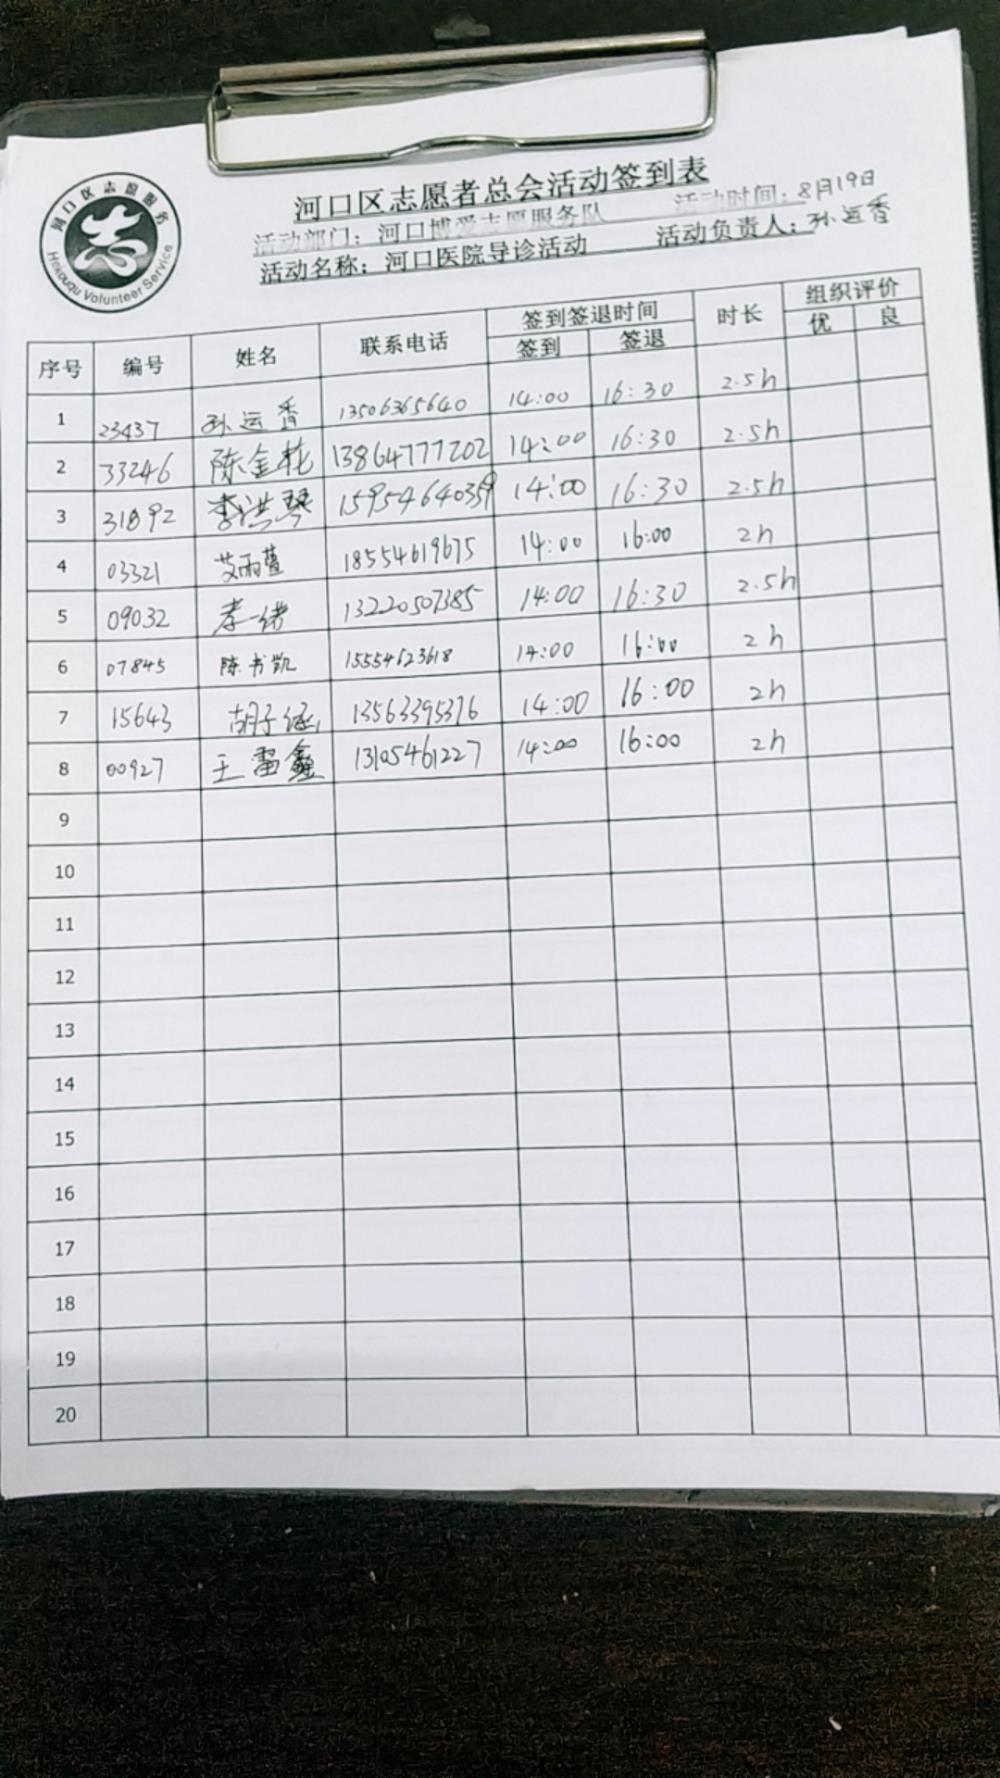 河口区志愿服务
志
Hekouqu Volunteer Service
河口区志愿者总会活动签到表
活动部门：河口博爱志愿服务队 活动时间：8月19日
活动名称：河口医院导诊活动 活动负责人：孙运香
序号 编号 姓名 联系电话 签到签退时间 时长 组织评价
签到 签退 优 良
1 23437 孙运香 13506365640 14:00 16:30 2.5h
2 33246 陈金花 13864777202 14:00 16:30 2.5h
3 31892 李洪琴 15954640359 14:00 16:30 2.5h
4 03321 艾雨萱 18554619675 14:00 16:00 2h
5 09032 李一诺 13220507385 14:00 16:30 2.5h
6 07845 陈书凯 15554623618 14:00 16:00 2h
7 15643 胡子涵 13563395376 14:00 16:00 2h
8 00927 王雷鑫 13105461227 14:00 16:00 2h
9
10
11
12
13
14
15
16
17
18
19
20